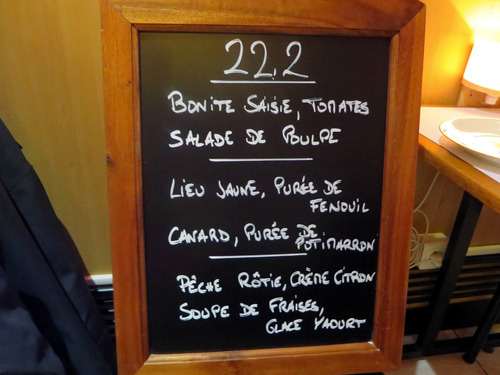 22,2
BONITE SAISIE, TOMATES
SALADE DE POULPE
LIEU JAUNE, PURÉE DE
FENOUIL
CANARD, PURÉE DE
POTIMARRON
PÊCHE RÔTIE, CRÈME CITRON
SOUPE DE FRAISES,
GLACE YAOURT